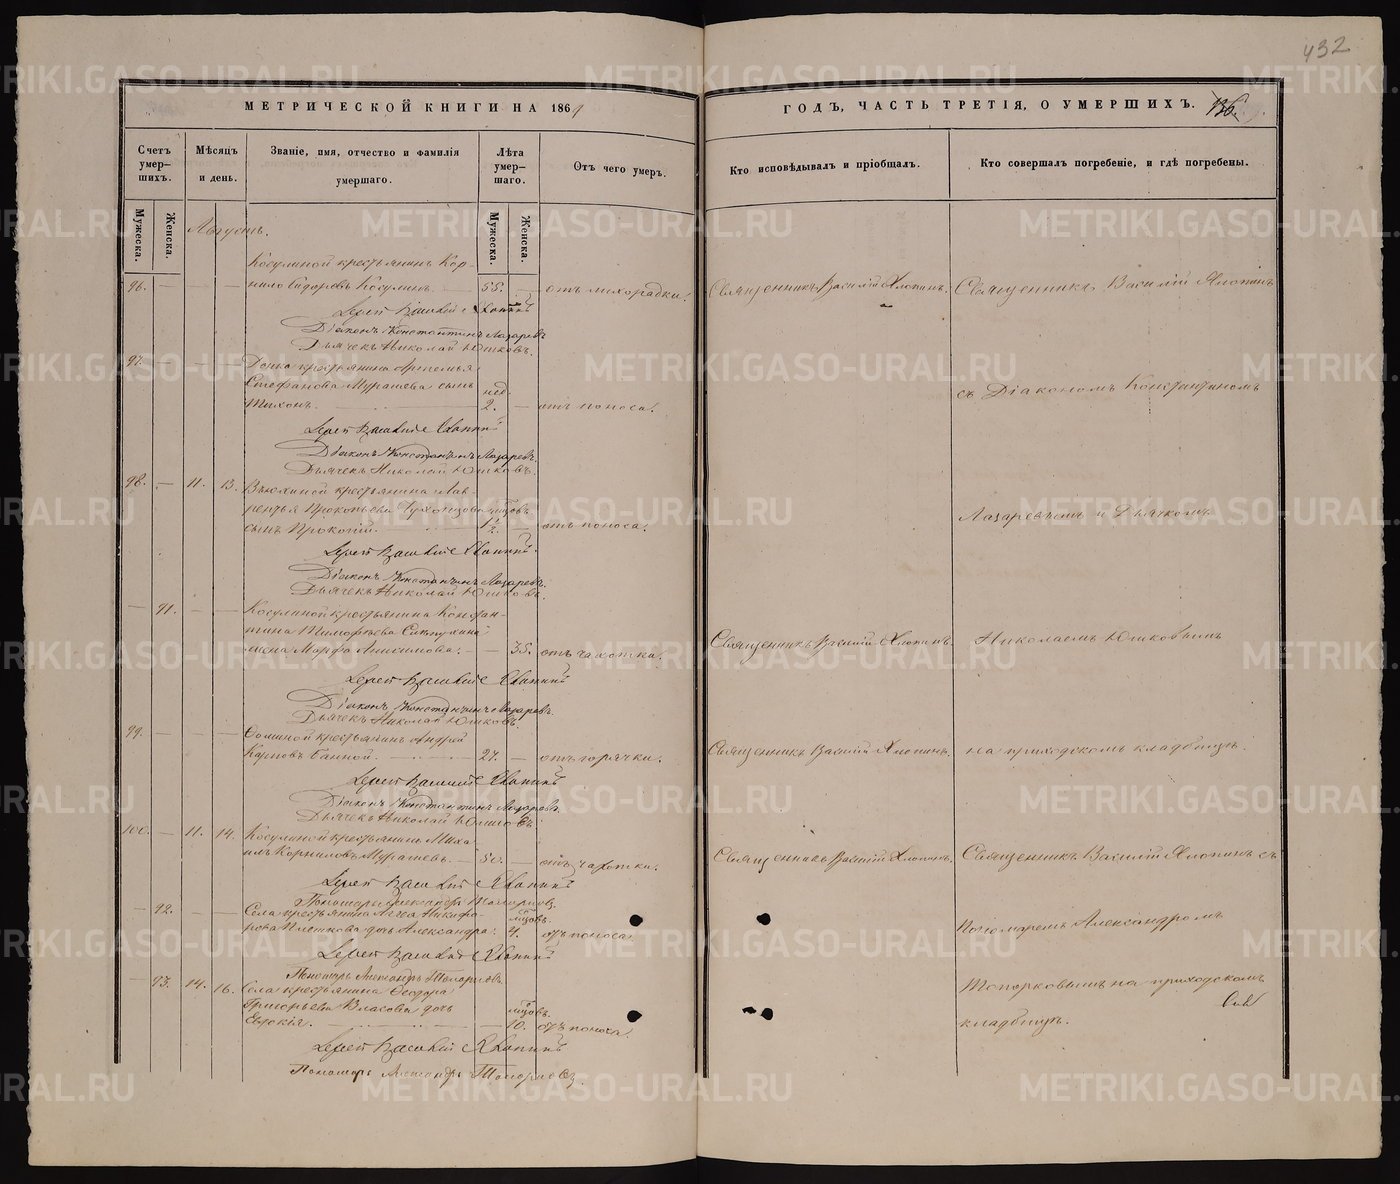 432
МЕТРИЧЕСКОЙ КНИГИ НА 1864
ГОДЪ, ЧАСТЬ ТРЕТІЯ, О УМЕРШИХЪ.
136.
Счетъ умер-шихъ.
Мѣсяцъ и день.
Званіе, имя, отчество и фамилія умершаго.
Лѣта умер-шаго.
Отъ чего умеръ.
Кто исповѣдывалъ и пріобщалъ.
Кто совершалъ погребеніе, и гдѣ погребены.
Мужеска.
Женска.
Мужеска.
Женска.
Августъ.
Косулиной крестьянинъ Кор-
96. — — — нило Сидоровъ Косулинъ. — 55. — отъ лихорадки. Священникъ Василій Хлопинъ. Священникъ Василій Хлопинъ
Іерей Василій Хлопинъ
Діаконъ Константинъ Лазаревъ
Дьячекъ Николай Юшковъ.
97. — — — крестьянина Артемья
Стефанова Мурашева сынъ нед.
Тихонъ. 2. — отъ поноса.
съ Діакономъ Константиномъ
Іерей Василій Хлопинъ
Діаконъ Константинъ Лазаревъ.
Дьячекъ Николай Юшковъ.
98. — 11. 13. крестьянина Лав-
рентья Прокопьева мѣсяцовъ
сынъ Прокопій. 1½. — отъ поноса.
Лазаревымъ и Дьячкомъ
Іерей Василій Хлопинъ.
Діаконъ Константинъ Лазаревъ.
Дьячекъ Николай Юшковъ.
— 91. — — Косулиной крестьянина Констан-
тина Тимофѣева
жена Марфа Анисимова. — — 35. отъ чахотки. Священникъ Василій Хлопинъ. Николаемъ Юшковымъ
Іерей Василій Хлопинъ
Діаконъ Константинъ Лазаревъ.
Дьячекъ Николай Юшковъ.
99. — — — крестьянинъ Андрей
Карповъ Банной. 27. — отъ горячки. Священникъ Василій Хлопинъ. на приходскомъ кладбищѣ.
Іерей Василій Хлопинъ
Діаконъ Константинъ Лазаревъ.
Дьячекъ Николай Юшковъ.
100. — 11. 14. Косулиной крестьянинъ Миха-
илъ Корниловъ Мурашевъ. — 50. — отъ чахотки. Священникъ Василій Хлопинъ. Священникъ Василій Хлопинъ съ
Іерей Василій Хлопинъ
Пономарь Александръ Топорковъ.
— 92. — — Села крестьянина Никифо-
рова дочь Александра. 4. отъ поноса.
Пономаремъ Александромъ
Іерей Василій Хлопинъ
Пономарь Александръ Топорковъ.
— 93. 14. 16. Села крестьянина Ѳеодора
Григорьева Власова дочь
Евдокія. 10. отъ поноса.
Топорковымъ на приходскомъ
кладбищѣ.
Іерей Василій Хлопинъ
Пономарь Александръ Топорковъ.
METRIKI.GASO-URAL.RU